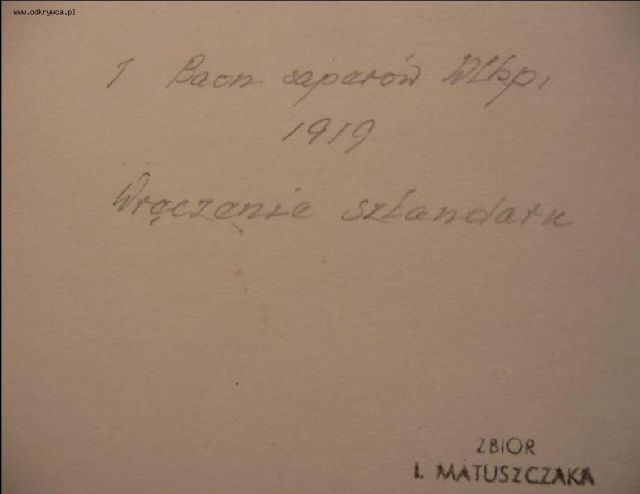 www.odkrywca.pl
I Baon saperów Wlkp.
1919
Wręczenie sztandaru
ZBIOR
I. MATUSZCZAKA